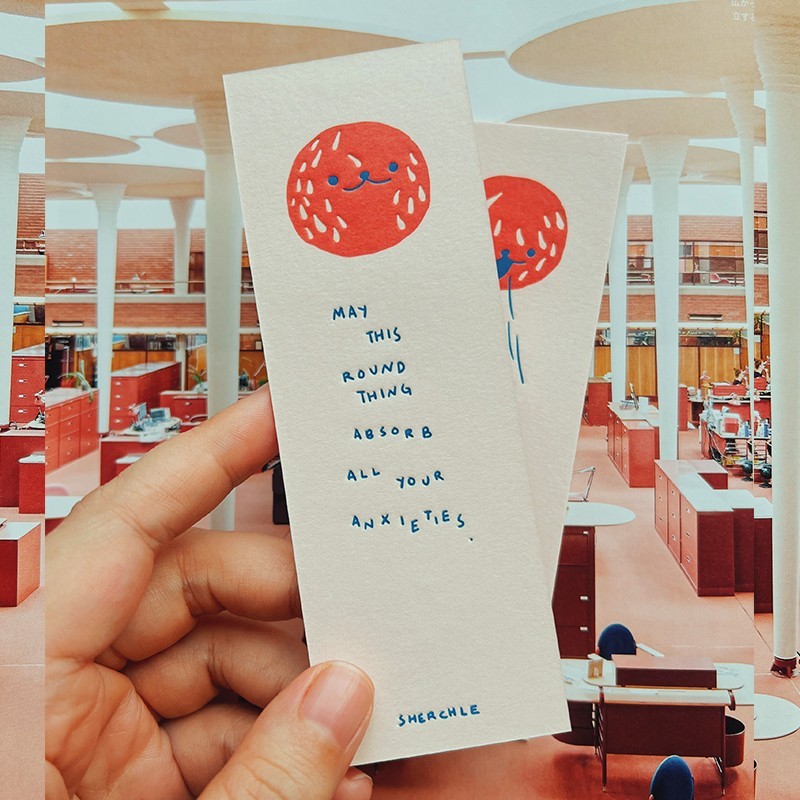 MAY
THIS
ROUND
THING
ABSORB
ALL YOUR
ANXIETIES.
SHERCHLE